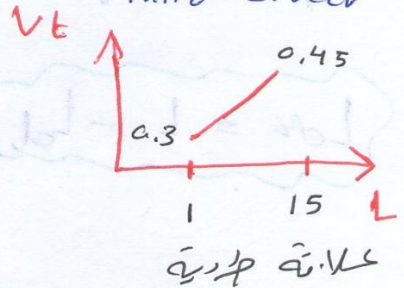 Vt
0.45
0.3
1 15 L
علاقة طردية